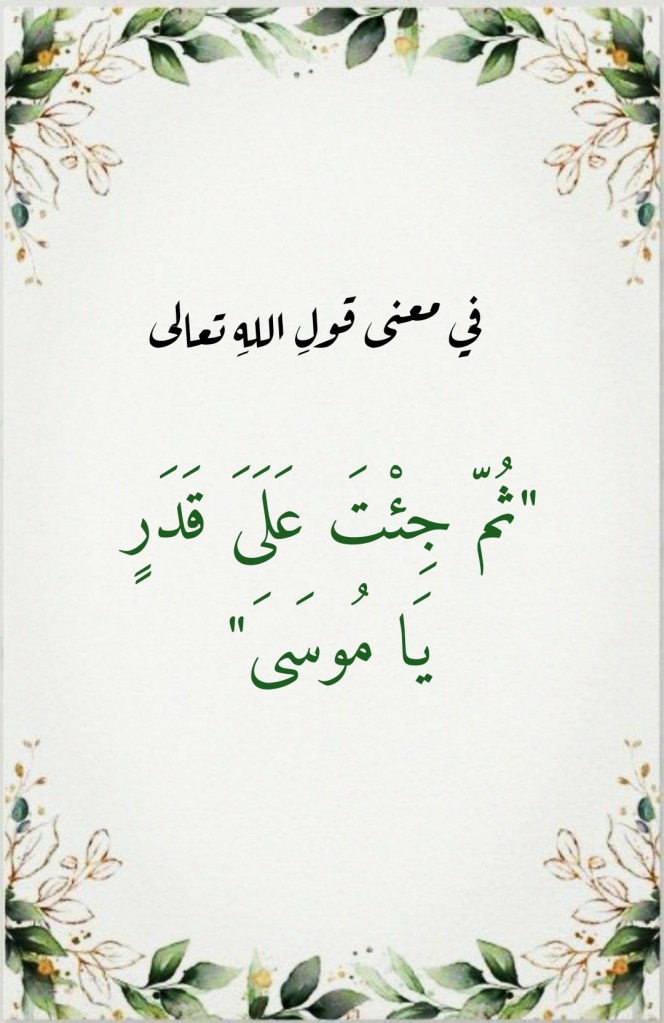 في معنى قولِ اللهِ تعالى
"ثُمّ جِئْتَ عَلَىَ قَدَرٍ
يَا مُوسَىَ"